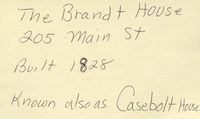 The Brandt House
205 Main St
Built 1828
Known also as Casebolt House